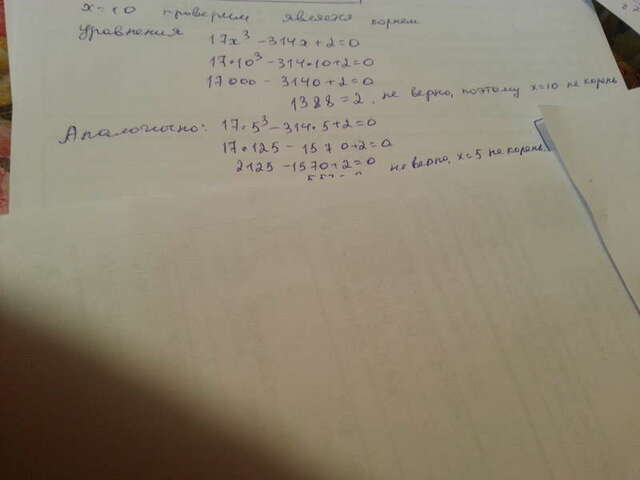 x=10 проверим является корнем
уравнения 17x³-314x+2=0
17•10³-314•10+2=0
17000-3140+2=0
1388=2, не верно, поэтому x=10 не корень
Аналогично: 17•5³-314•5+2=0
17•125-1570+2=0
2125-1570+2=0
не верно, x=5 не корень